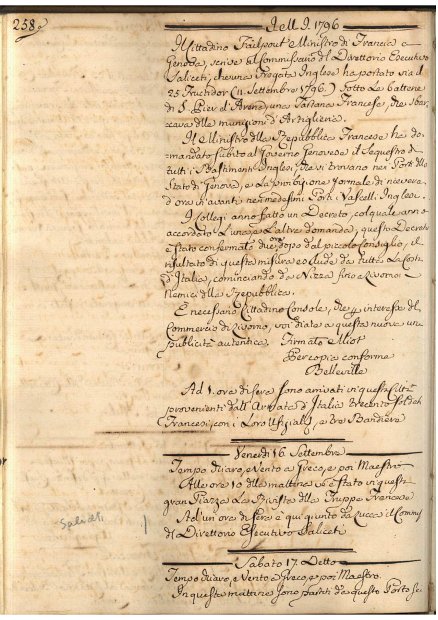 258.
Dell' A. 1796
Il Cittadino Faipoult Ministro di Francia a
Genova, scrive al Commissario del Direttorio Esecutivo
Saliceti, che una Fregata Inglese ha portato via il
25 Fructidor (11. Settembre 1796.) sotto le batterie
di S. Pier d'Arena, una Tartana Francese, che sbar-
cava delle munizioni d'Artiglieria.
Il Ministro della Repubblica Francese ha do-
mandato subito al Governo Genovese il sequestro di
tutti i Bastimenti Inglesi, che si trovano nei Porti dello
Stato di Genova, e la proibizione formale di ricevere
d'ora in avanti nei medesimi Porti i Vascelli Inglesi.
I Collegj anno fatto un Decreto, col quale anno
accordato l'una, e l'altra domanda, questo Decreto
è stato confermato due ore dopo dal piccolo Consiglio, il
risultato di questa misura esclude da tutta la Costa
d'Italia, cominciando da Nizza fino a Livorno i
Nemici della Repubblica.
È necessario Cittadino Console, che per interesse del
Commercio di Livorno, voi diate a questa nuova una
pubblicità autentica. Firmato Miot
Per copia conforme
Belleville
Ad 1. ora di sera sono arrivati in questa Città
provenienti dall' Armata d'Italia trecento Soldati
Francesi, con i loro Ufiziali, e tre Bandiere
Venerdì 16. Settembre
Tempo chiaro, e Vento a Greco, e poi Maestro
Alle ore 10 della mattina vi è stato in questa
gran Piazza la Rivista delle Truppe Francesi
Ad un'ora di sera è qui giunto da Lucca il Commis.
del Direttorio Esecutivo Saliceti
Saliceti
Sabato 17. Detto
Tempo chiaro, e Vento a Greco, e poi Maestro.
In questa mattina sono partiti da questo Porto se